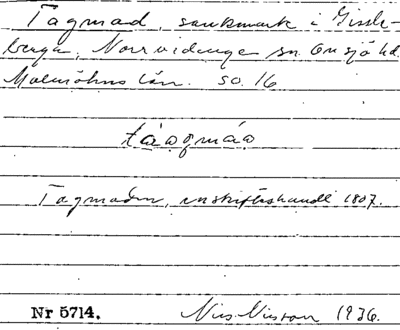 Tagmad, sankmark i Gisele-
berga, Norrvidinge sn. Onsjö hd.
Malmöhus län. so. 16
tåagmåa
Tagmaden, enskifteshandl 1807.
Nr 5714. Nils Nilsson 1936.